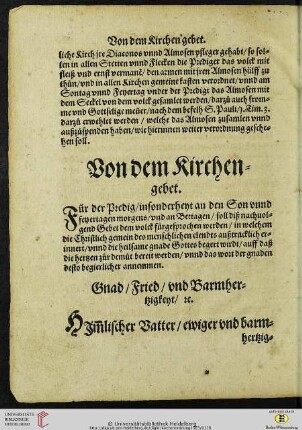 Von dem Kirchen gebet.
liche Kirch jre Diaconos vnnd Almosen pfleger gehabt / so sol-
len in allen Stetten vnnd Flecken die Prediger das volck mit
fleiß vnd ernst vermant / den armen mit jren Almosen hülff zu
thůn / vnd in allen Kirchen gemeine kasten verordnet / vnnd am
Sontag vnnd Feyertag vnder der Predigt das Almosen mit
dem Seckel von dem volck gesamlet werden / darzů auch from-
me vnd Gottselige menner / nach dem befelh S. Pauli / 1. Tim. 3.
darzů erwehlet werden / welche das Almosen zusamlen vnnd
außzůspenden haben / wie hierinnen weiter verordnung gesche-
hen soll.
Von dem Kirchen-
gebet.
Für der Predig / insonderheyt an den Son vnnd
Feyertagen morgens / vnd an Bettagen / soll diß nachuol-
gend Gebet dem volck fürgesprochen werden / in welchem
die Christlich gemein des menschlichen elendts außtrücklich er-
innert / vnnd die heilsame gnade Gottes begert wirdt / auff daß
die hertzen zůr demůt bereit werden / vnnd das wort der gnaden
desto begierlicher annemmen.
Gnad / Fried / vnd Barmher-
tzigkeyt / ꝛc.
HJmlischer Vatter / ewiger vnd barm-
hertzig-
UNIVERSITÄTS-
BIBLIOTHEK
HEIDELBERG
© Universitätsbibliothek Heidelberg